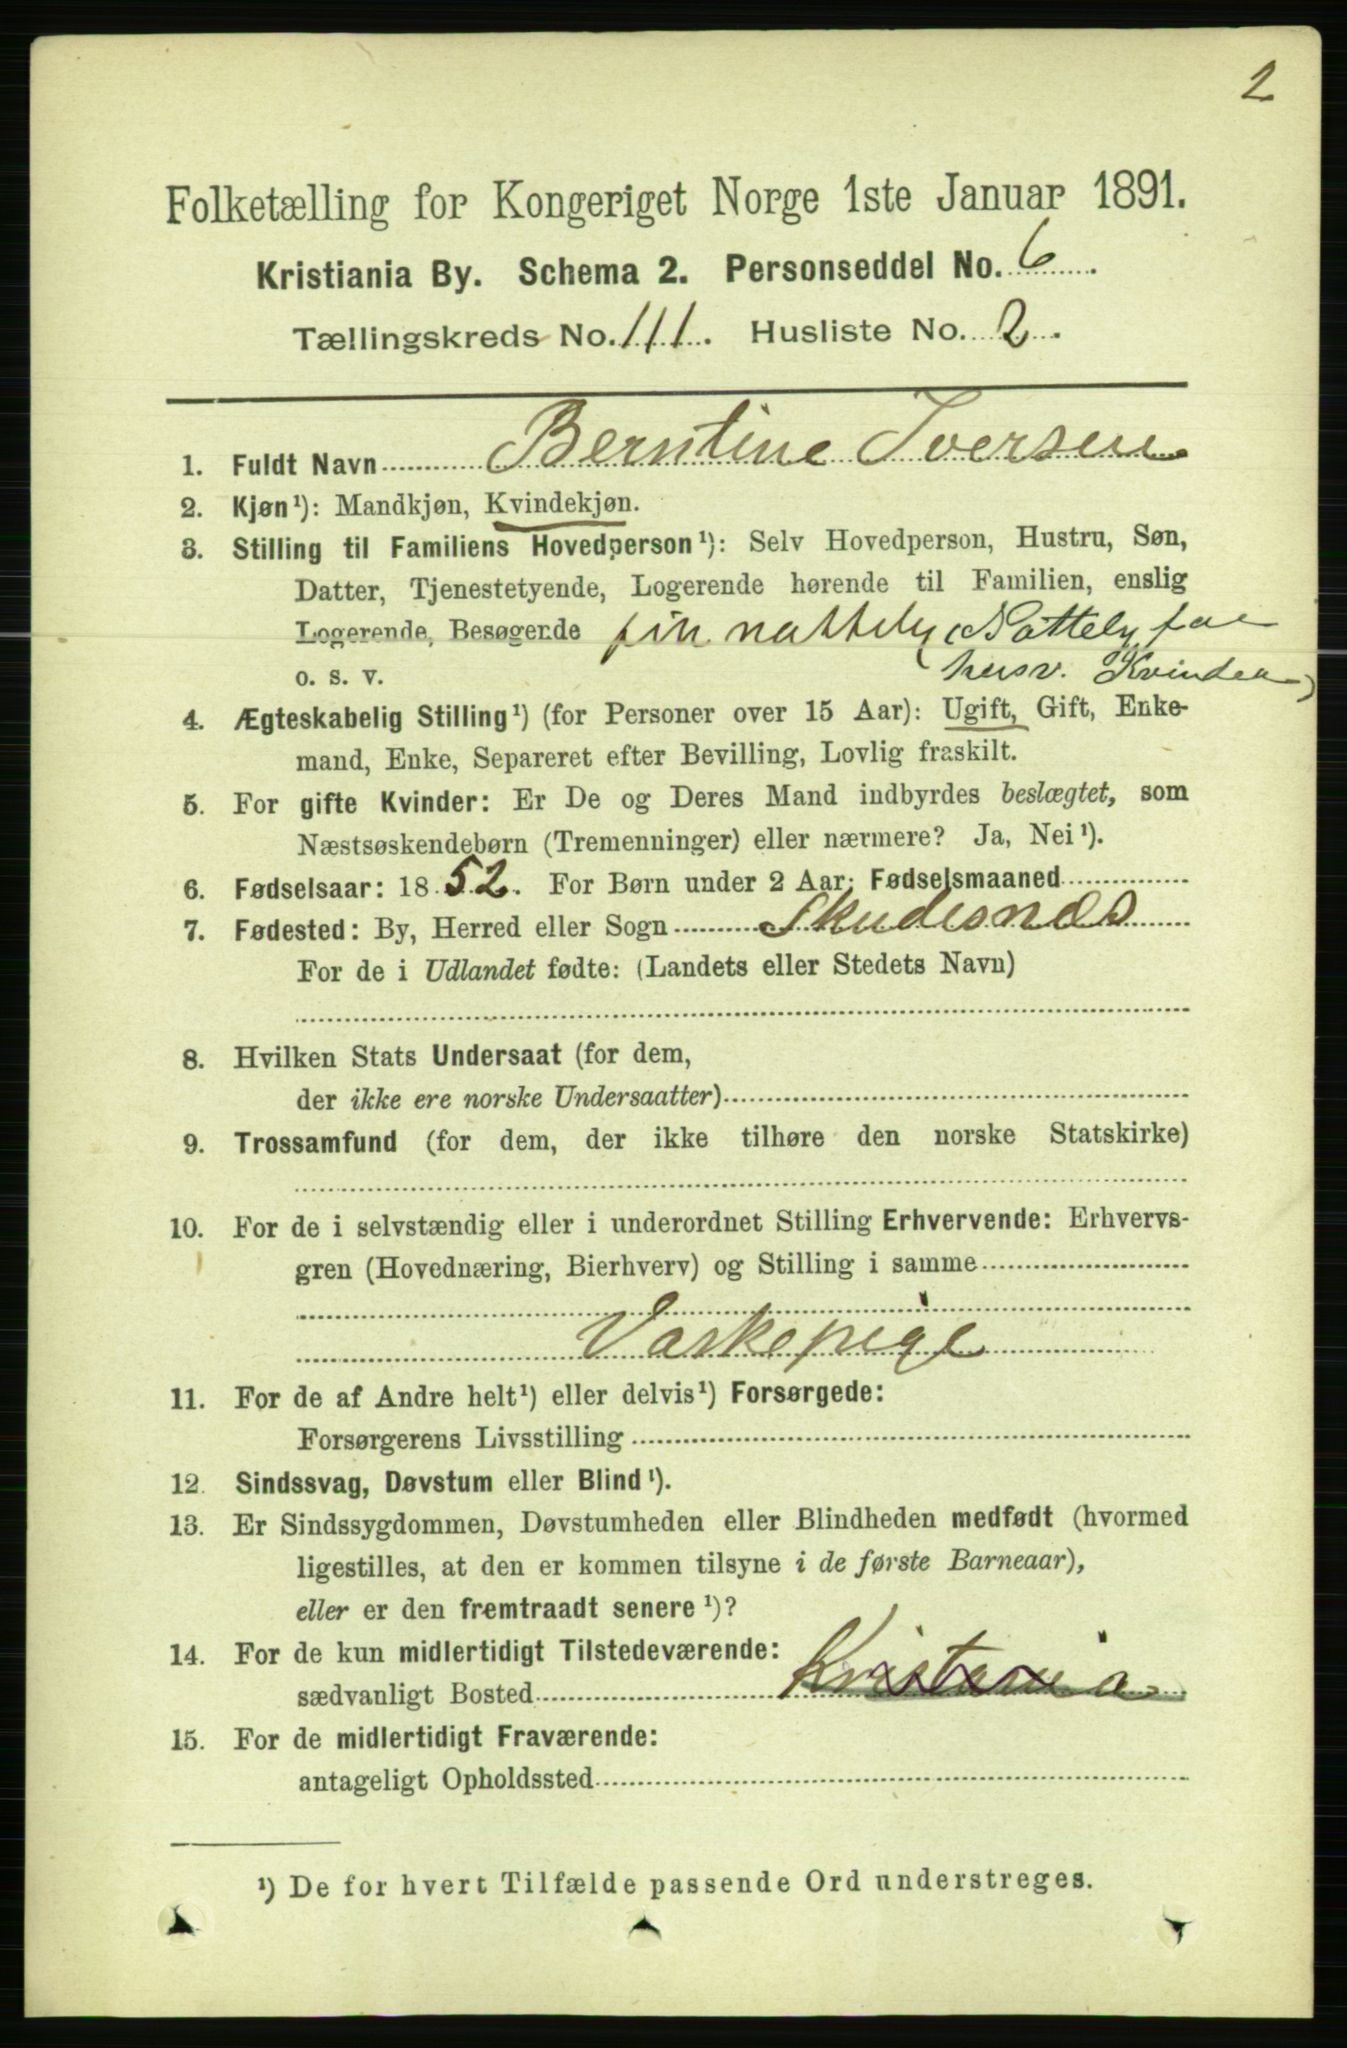 2
Folketælling for Kongeriget Norge 1ste Januar 1891.
Kristiania By. Schema 2. Personseddel No. 6.
Tællingskreds No. 111. Husliste No. 2.
1. Fuldt Navn Berntine Iversen
2. Kjøn¹): Mandkjøn, Kvindekjøn.
3. Stilling til Familiens Hovedperson¹): Selv Hovedperson, Hustru, Søn,
Datter, Tjenestetyende, Logerende hørende til Familien, enslig
Logerende, Besøgende nattely (Nattely for
o. s. v. husv. Kvinder)
4. Ægteskabelig Stilling¹) (for Personer over 15 Aar): Ugift, Gift, Enke-
mand, Enke, Separeret efter Bevilling, Lovlig fraskilt.
5. For gifte Kvinder: Er De og Deres Mand indbyrdes beslægtet, som
Næstsøskendebørn (Tremenninger) eller nærmere? Ja, Nei¹).
6. Fødselsaar: 1852. For Børn under 2 Aar: Fødselsmaaned
7. Fødested: By, Herred eller Sogn Skudesnæs
For de i Udlandet fødte: (Landets eller Stedets Navn)
8. Hvilken Stats Undersaat (for dem,
der ikke ere norske Undersaatter)
9. Trossamfund (for dem, der ikke tilhøre den norske Statskirke)
10. For de i selvstændig eller i underordnet Stilling Erhvervende: Erhvervs-
gren (Hovednæring, Bierhverv) og Stilling i samme
Vaskepige
11. For de af Andre helt¹) eller delvis¹) Forsørgede:
Forsørgerens Livsstilling
12. Sindssvag, Døvstum eller Blind¹).
13. Er Sindssygdommen, Døvstumheden eller Blindheden medfødt (hvormed
ligestilles, at den er kommen tilsyne i de første Barneaar),
eller er den fremtraadt senere¹)?
14. For de kun midlertidigt Tilstedeværende:
sædvanligt Bosted Kristania
15. For de midlertidigt Fraværende:
antageligt Opholdssted
¹) De for hvert Tilfælde passende Ord understreges.